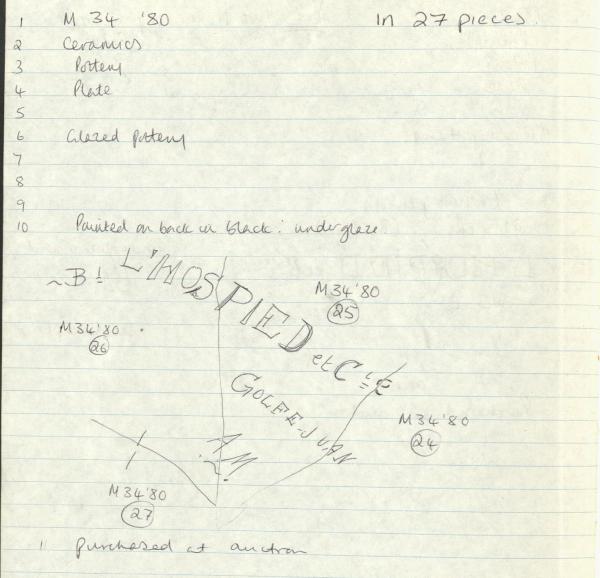 1 M 34 '80 In 27 pieces.
2 Ceramics
3 Pottery
4 Plate
5
6 Glazed Pottery
7
8
9
10 Painted on back in black: underglaze
~B! L'HOSPIED et Cie
M 34'80
25
M 34'80
26
GOLFE-JUAN
M 34'80
24
A.M.
M 34'80
27
11 purchased at auction